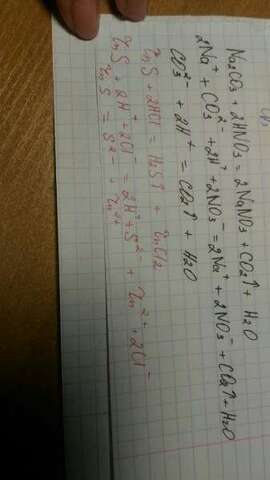 Na₂CO₃ + 2HNO₃ = 2NaNO₃ + CO₂↑ + H₂O
2Na⁺ + CO₃²⁻ + 2H⁺ + 2NO₃⁻ = 2Na⁺ + 2NO₃⁻ + CO₂↑ + H₂O
CO₃²⁻ + 2H⁺ = CO₂↑ + H₂O
ZnS + 2HCl = H₂S↑ + ZnCl₂
ZnS + 2H⁺ + 2Cl⁻ = 2H⁺ + S²⁻ + Zn²⁺ + 2Cl⁻
ZnS = S²⁻ + Zn²⁺